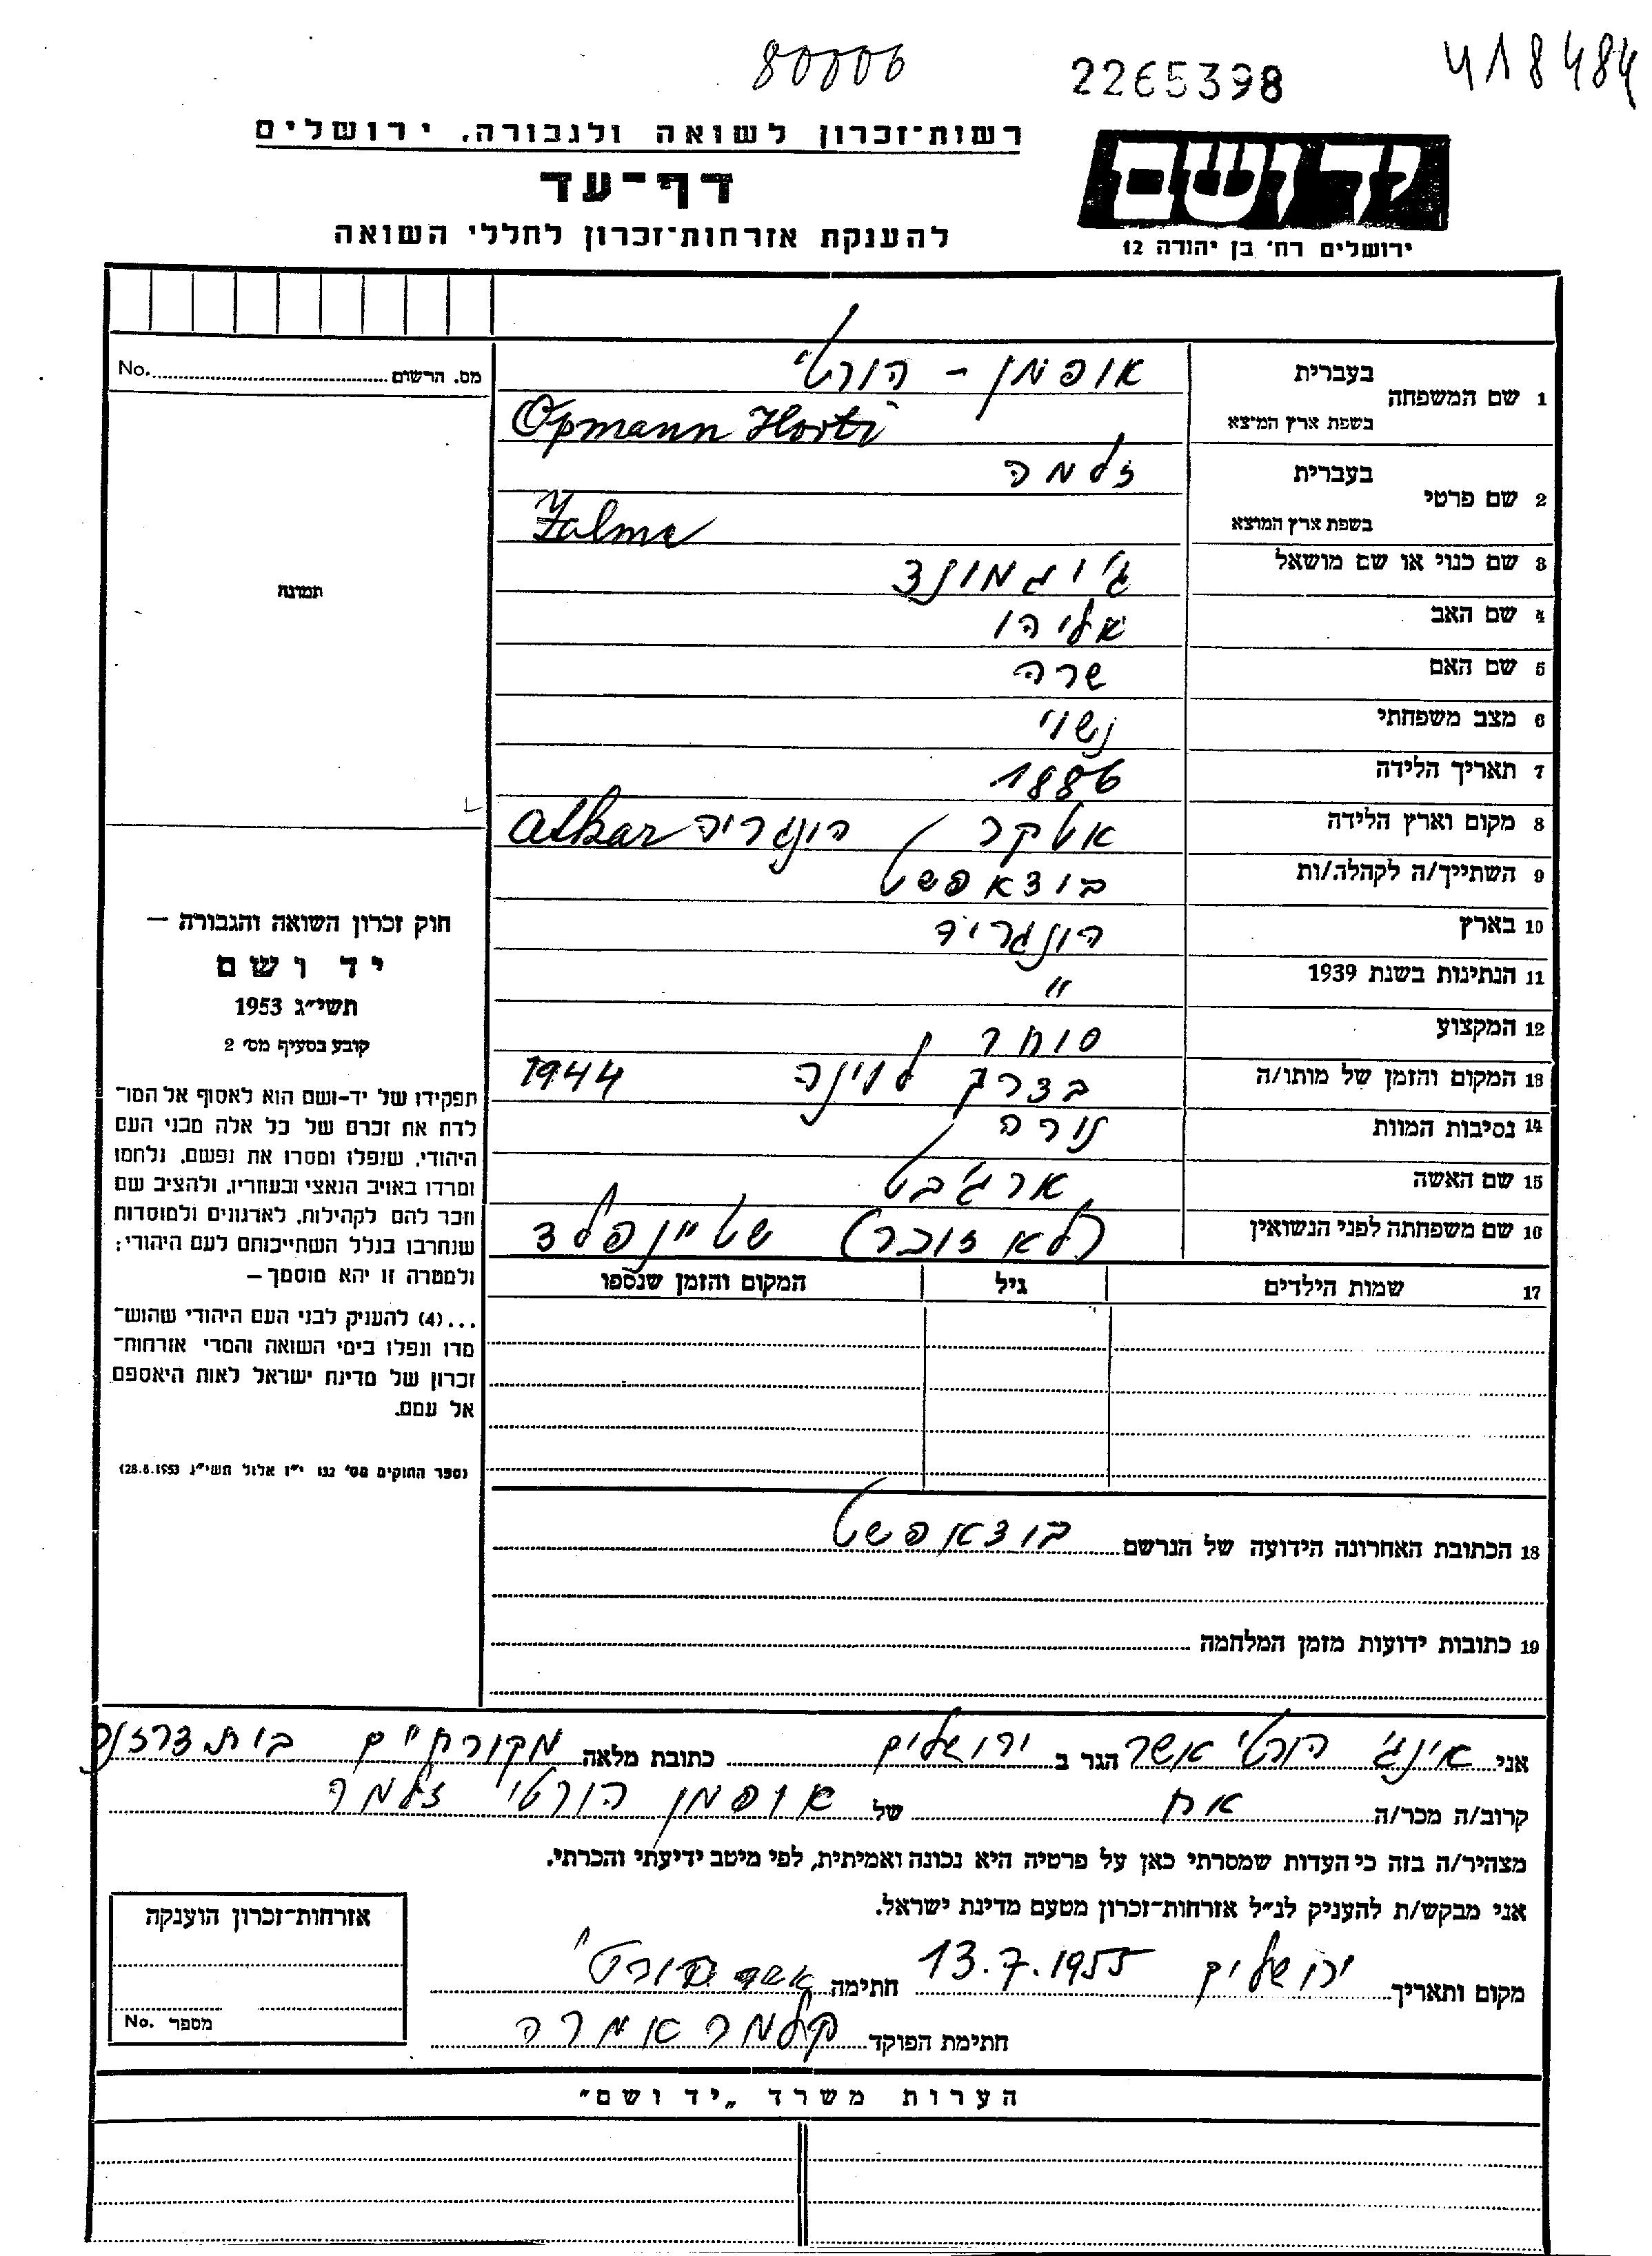 80006 2265398 418484
רשות־זכרון לשואה ולגבורה, ירושלים
יד ושם
דף־עד
להענקת אזרחות־זכרון לחללי השואה
ירושלים רח' בן יהודה 12
מס. הרשום No.
1 שם המשפחה בעברית אופמן - הורטי
בשפת ארץ המוצא Opmann Horti
2 שם פרטי בעברית זלמה
בשפת ארץ המוצא Zalma
3 שם כנוי או שם מושאל ג'יגמונד
תמונה
4 שם האב אליהו
5 שם האם שרה
6 מצב משפחתי נשוי
7 תאריך הלידה 1886
8 מקום וארץ הלידה אטקר הונגריה Atkar
9 השתייך/ה לקהלה/ות בודאפשט
10 בארץ הונגריה
11 הנתינות בשנת 1939 "
12 המקצוע סוחר
13 המקום והזמן של מותו/ה בדרך לוינה 1944
14 נסיבות המוות נורה
15 שם האשה ארג'בט
16 שם משפחתה לפני הנשואין (לא זוכר) שטיינפלד
17 שמות הילדים גיל המקום והזמן שנספו
חוק זכרון השואה והגבורה —
יד ושם
תשי"ג 1953
קובע בסעיף מס' 2
תפקידו של יד־ושם הוא לאסוף אל המו־
לדת את זכרם של כל אלה מבני העם
היהודי, שנפלו ומסרו את נפשם, נלחמו
ומרדו באויב הנאצי ובעוזריו, ולהציב שם
וזכר להם לקהילות, לארגונים ולמוסדות
שנחרבו בגלל השתייכותם לעם היהודי;
ולמטרה זו יהא מוסמך —
...(4) להעניק לבני העם היהודי שהוש־
מדו ונפלו בימי השואה והמרי אזרחות־
זכרון של מדינת ישראל לאות היאספם
אל עמם.
(ספר החוקים מס' 132 י"ז אלול תשי"ג 28.8.1953)
18 הכתובת האחרונה הידועה של הנרשם בודאפשט
19 כתובות ידועות מזמן המלחמה
אני אינג' הורטי אשר הגר ב ירושלים כתובת מלאה מקור חיים
קרוב/ה מכר/ה אח של אופמן הורטי זלמה
מצהיר/ה בזה כי העדות שמסרתי כאן על פרטיה היא נכונה ואמיתית, לפי מיטב ידיעתי והכרתי.
אני מבקש/ת להעניק לנ"ל אזרחות־זכרון מטעם מדינת ישראל.
מקום ותאריך ירושלים 13.7.1955 חתימה אשר הורטי
חתימת הפוקד קלמר אמרה
אזרחות־זכרון הוענקה
מספר No.
הערות משרד „יד ושם"